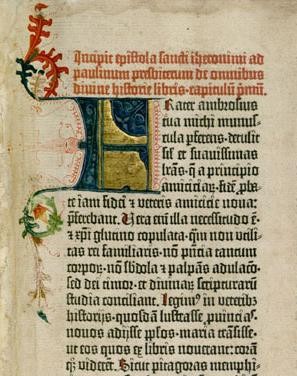 Incipit epistola sancti iheronimi ad
paulinum presbiterum de omnibus
divine historie libris. capitulū pmū.
Frater ambrosius
tua michi munus-
cula pferens. detulit
sil' et suavissimas
lrās. q̄ a principio
amiciciar̄. fidē pba-
te iam fidei et veteris amicicie nova:
pferebant. Vera eni illa necessitudo ē.
et xpi glutino copulata. qm non vtili-
tas rei familiaris. nō pntia tantum
corpor̄. nō sbdola et palpās adulaco.
sed dei timor. et divinar̄ scripturarū
studia conciliant. Legim9 in veterib3
historijs. quosdā lustrasse puincias.
novos adijsse pplos. maria trāsisse.
ut eos quos ex libris noverant: corā
q3 viderēt. Sicut pitagoras memphi-